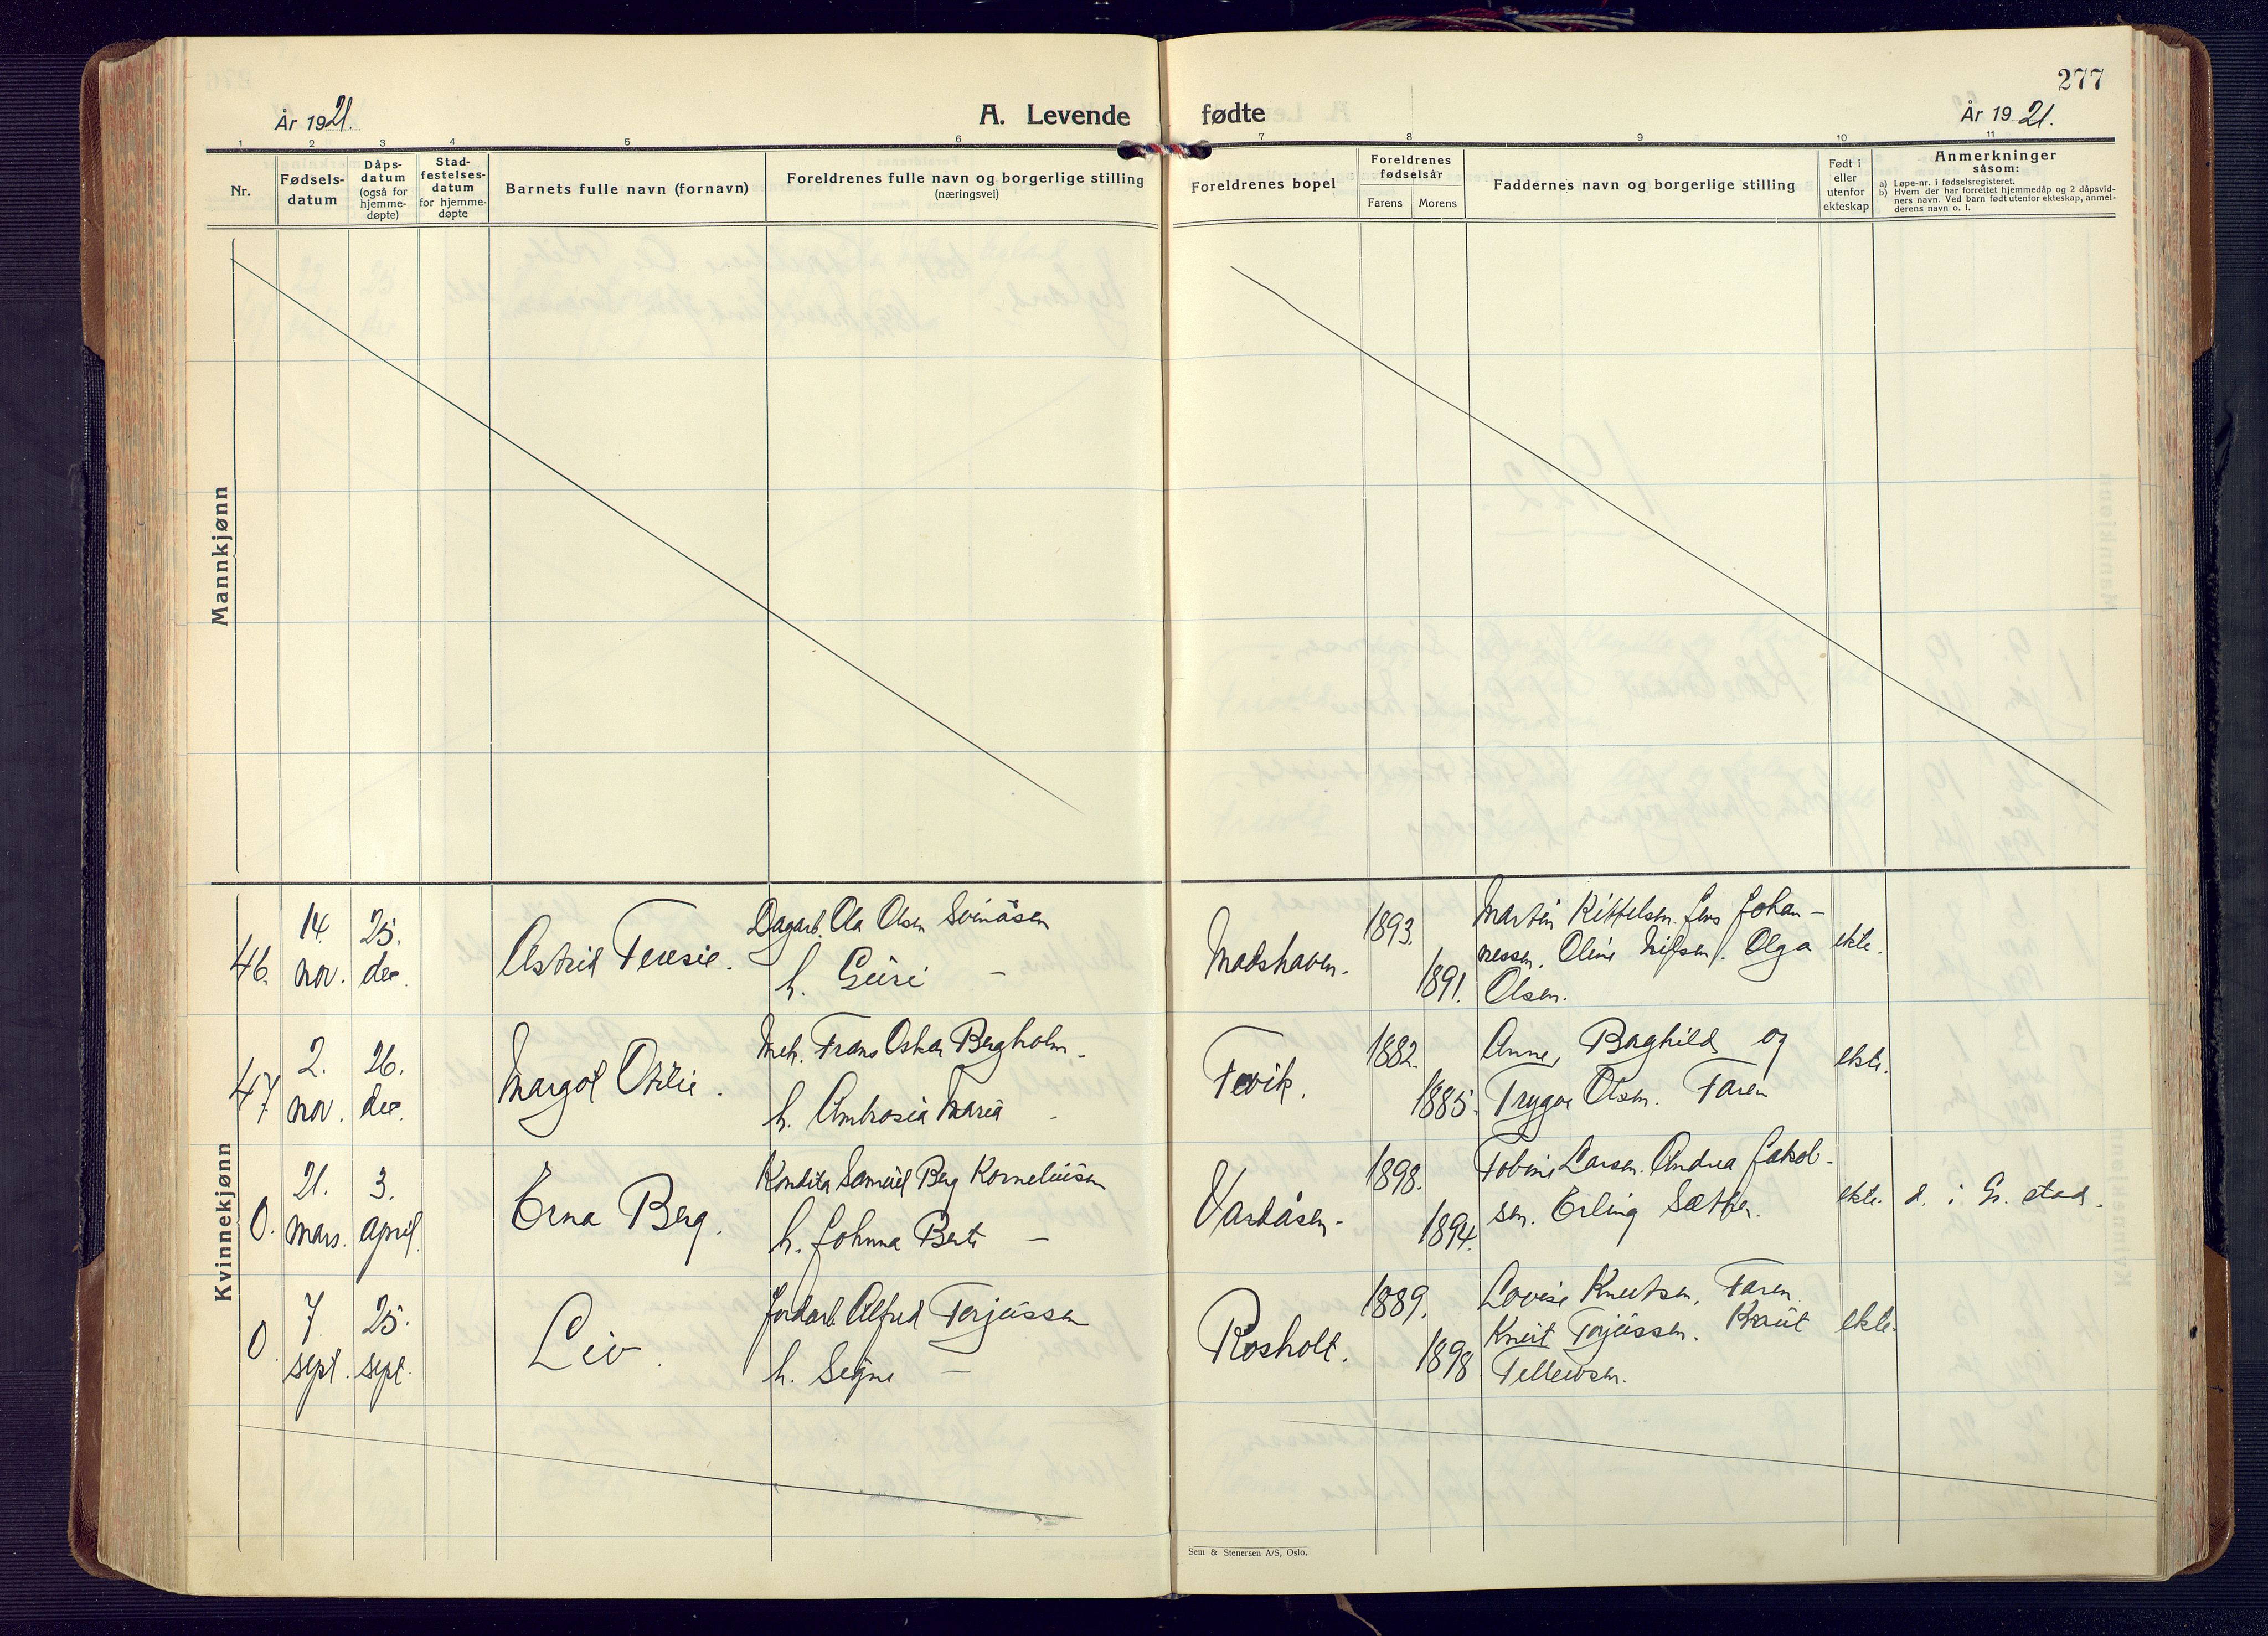 277
År 1921.
A. Levende fødte
År 1921.
1 2 3 4 5 6 7 8 9 10 11
Nr.
Fødsels-
datum
Dåps-
datum
(også for
hjemme-
døpte)
Stad-
festelses-
datum
for hjemme-
døpte
Barnets fulle navn (fornavn)
Foreldrenes fulle navn og borgerlige stilling
(næringsvei)
Foreldrenes bopel
Foreldrenes
fødselsår
Farens
Morens
Faddernes navn og borgerlige stilling
Født i
eller
utenfor
ekteskap
Anmerkninger
såsom:
a) Løpe-nr. i fødselsregisteret.
b) Hvem der har forrettet hjemmedåp og 2 dåpsvid-
ners navn. Ved barn født utenfor ekteskap, anmel-
derens navn o. l.
Mannkjønn
Kvinnekjønn
46.
14.
nov.
25.
dec.
Astrid Teresie.
Dagarb. Ola Olsen Svinåsen
h. Guri —
Madshaven.
1893.
1891.
Martin Kittelsen. Jens Johan-
nessen. Oline Nilsen. Olga
Olsen.
ekte.
47
2.
nov.
26.
dec.
Margot Otilie.
Mek. Frans Oskar Bergholm.
h. Ambrosia Maria -
Fevik.
1882.
1885.
Anne, Borghild og
Trygve Olsen. Faren
ekte.
0.
21.
mars.
3.
april.
Erna Berg.
Samuel Berg Korneliussen
h. Johnna Berte —
Vardåsen.
1898.
1894.
Tobine Larsen. Andrea Jakob-
sen. Erling Sæther.
ekte.
d. i Gr. stad.
0.
7.
sept.
25.
sept.
Liv.
Jordarb. Alfred Terjussen
h. Signe —
Rosholt.
1889.
1898
Lovise Knutsen, Faren
Knut Terjussen. Knut
Tellevsen.
ekte.
Sem & Stenersen A/S, Oslo.